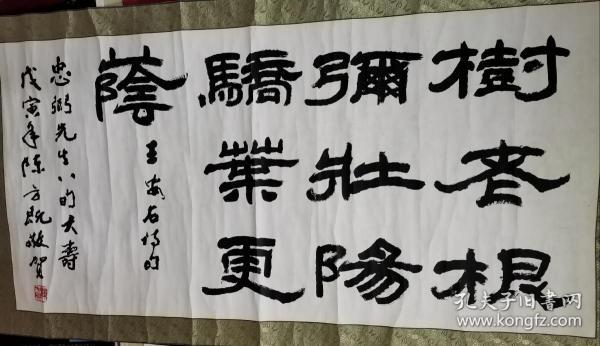 樹老根
彌壯陽
驕葉更
蔭
王安石詩句
忠弼先生八旬大壽
戊寅年陈方既敬賀
孔夫子旧書网
www.kongfz.com